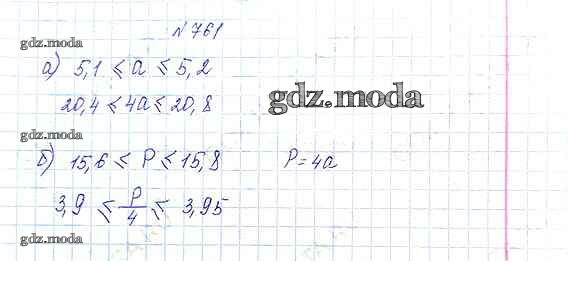 № 761
gdz.moda
а) 5,1 ⩽ a ⩽ 5,2
20,4 ⩽ 4a ⩽ 20,8
gdz.moda
gdz.moda
б) 15,6 ⩽ P ⩽ 15,8 P = 4a
3,9 ⩽ P/4 ⩽ 3,95
gdz.moda